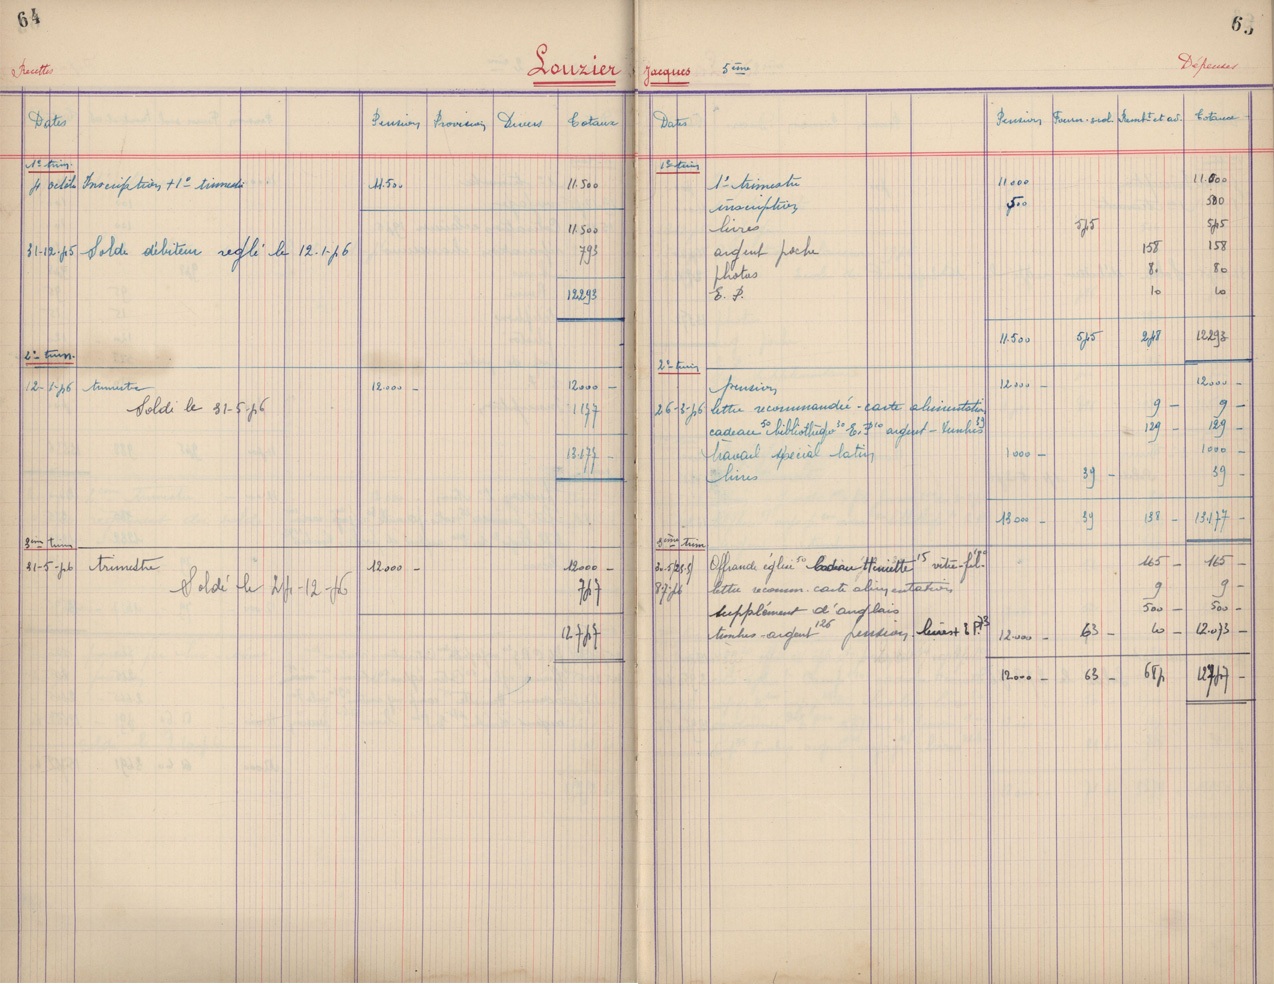 64
Recettes
Louzier
Dates Pension Provision Divers Totaux
1er trim.
4 octob Inscription + 1er trimestre 11.500 11.500
11.500
31-12-45 Solde débiteur réglé le 12.1-46 793
12.293
2e trim.
12-1-46 trimestre 12.000 - 12.000 -
Soldé le 31-5-46 1177
13.177 -
3ème trim
31-5-46 trimestre 12.000 - 12.000 -
Soldé le 24-12-46 747
12.747
65
Jacques 5ème Dépenses
Dates Pension Fourn. scol. Remb.t et av. Totaux
1er trim
1er trimestre 11.000 11.000
inscription 500 500
livres 545 545
argent poche 158 158
photos 80 80
E. P. 10 10
11.500 545 248 12.293
2e trim
pension 12.000 - 12.000 -
26-3-46 lettre recommandée - carte alimentation 9 - 9 -
cadeau 50 bibliothèque 30 E.P 10 argent - timbres 39 129 - 129 -
travail spécial latin 1000 - 1000 -
livres 39 - 39 -
13.000 - 39 138 - 13.177 -
3ème trim
Offrande église 50 cadeau Henriette 15 165 - 165 -
8-7-46 lettre recomm. carte alimentation 9 - 9 -
supplément d'anglais 500 - 500 -
timbres-argent 126 pension - livres + E P. 12.000 - 63 - 10 - 12.073 -
12.000 - 63 - 684 12.747 -